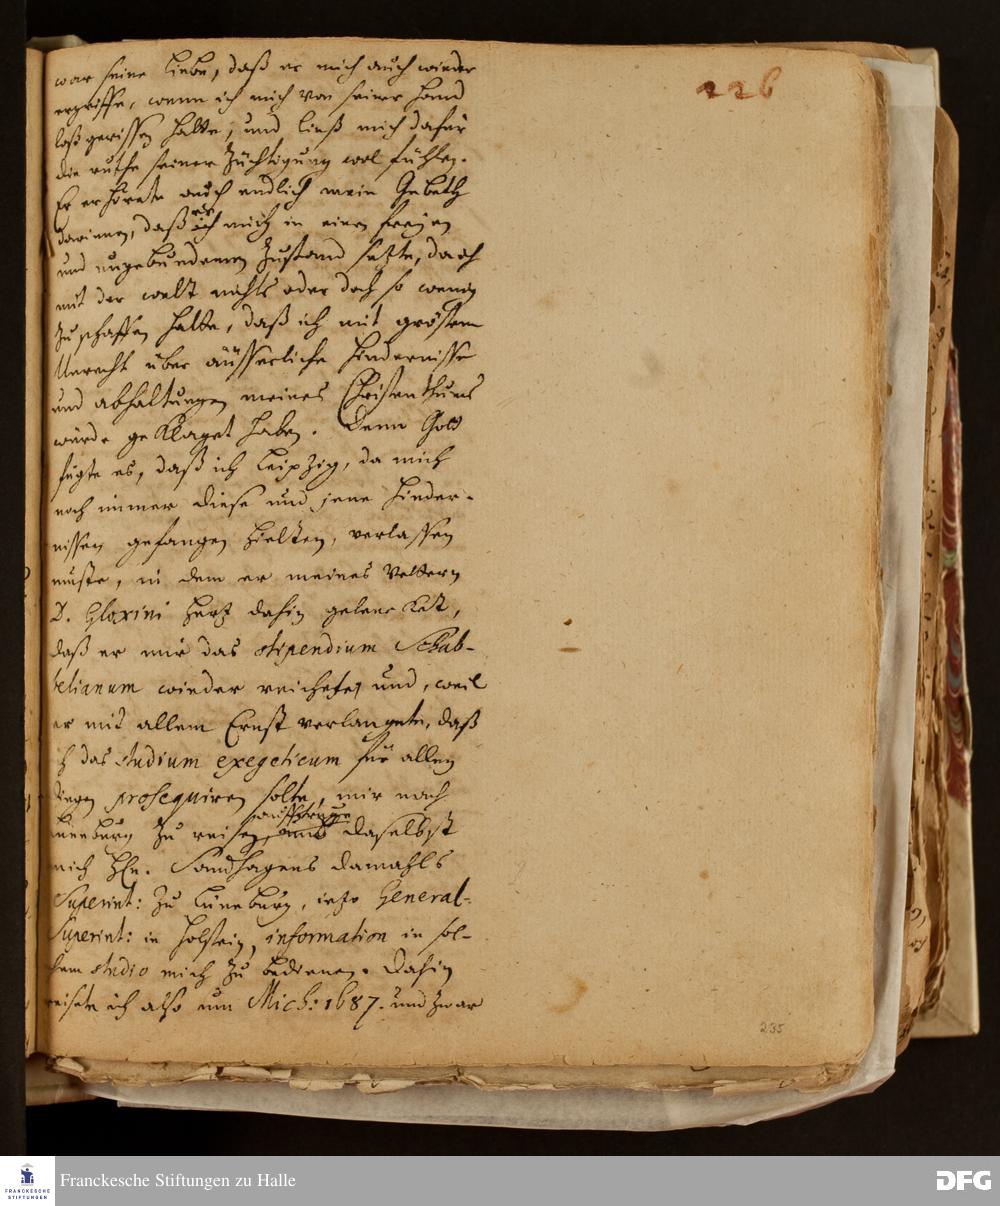 226
war seine Liebe, daß er mich auch wieder
ergriffe, wenn ich mich von seiner Hand
loß gerissen hatte, und ließ mich dafür
die ruthe seiner Züchtigung wol fühlen.
Er erhörete auch endlich mein Gebeth
darinnen, daß er mich in einen freyen
und ungebundenen Zustand setzte, da ich
mit der welt nichts oder doch so wenig
zu schaffen hatte, daß ich mit grösten
Unrecht über äusserliche Hindernisse
und abhaltungen meines Christenthums
würde geklaget haben. Denn Gott
fügte es, daß ich Leipzig, da mich
noch immer diese und jene Hinder-
nissen gefangen hielten, verlassen
muste, in dem er meines Vettern
D. Gloxini Hertz dahin gelencket,
daß er mir das stipendium Schab-
belianum wieder reichete, und, weil
er mit allem Ernst verlangete, daß
ich das studium exegeticum für allen
dingen prosequiren solte, mir nach
Lüneburg zu reisen aufftruge daselbst
mich Hn. Sandhagens damahls
Superint: zu Lüneburg, ietzo General-
Superint: in Holstein, information in sol-
chem studio mich zu bedienen. Dahin
reisete ich also um Mich: 1687. und zwar
235
Franckesche Stiftungen zu Halle
FRANCKESCHE
STIFTUNGEN
DFG